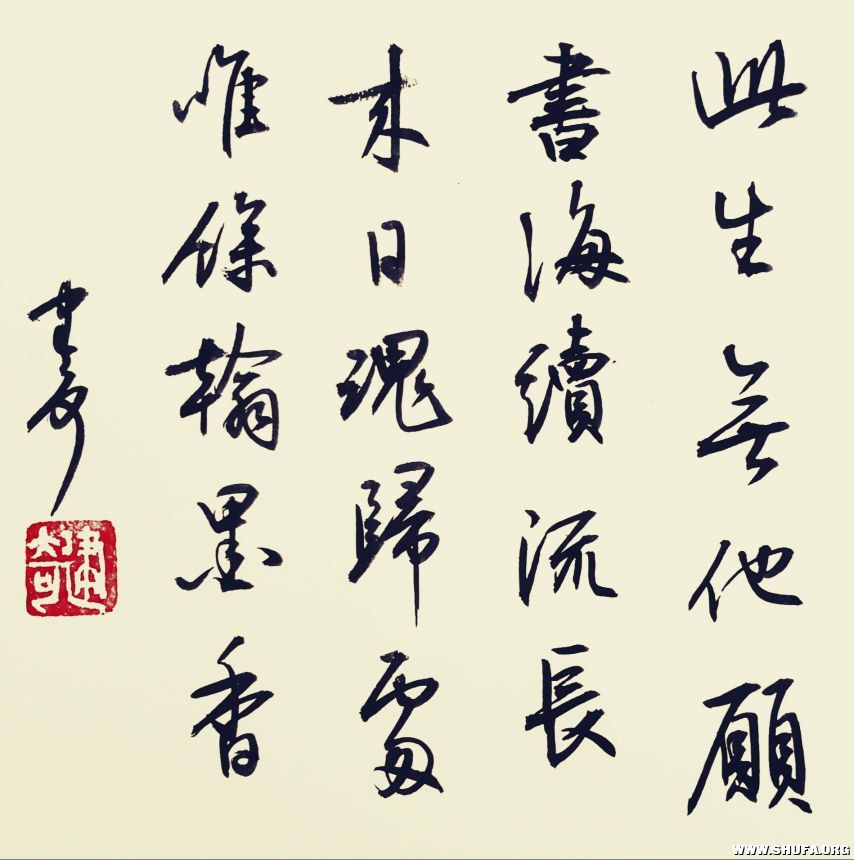 此生無他願
書海續流長
末日魂歸處
惟餘翰墨香
建奇
建奇
WWW.SHUFA.ORG